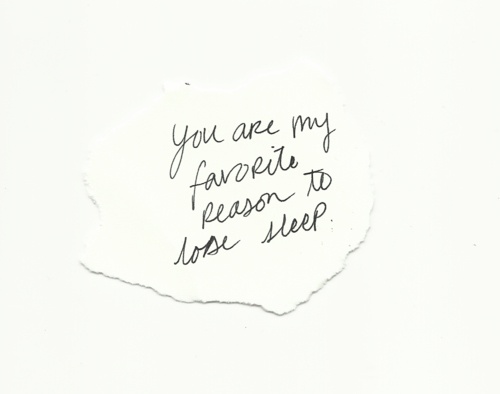 you are my
favorite
reason to
lose sleep.